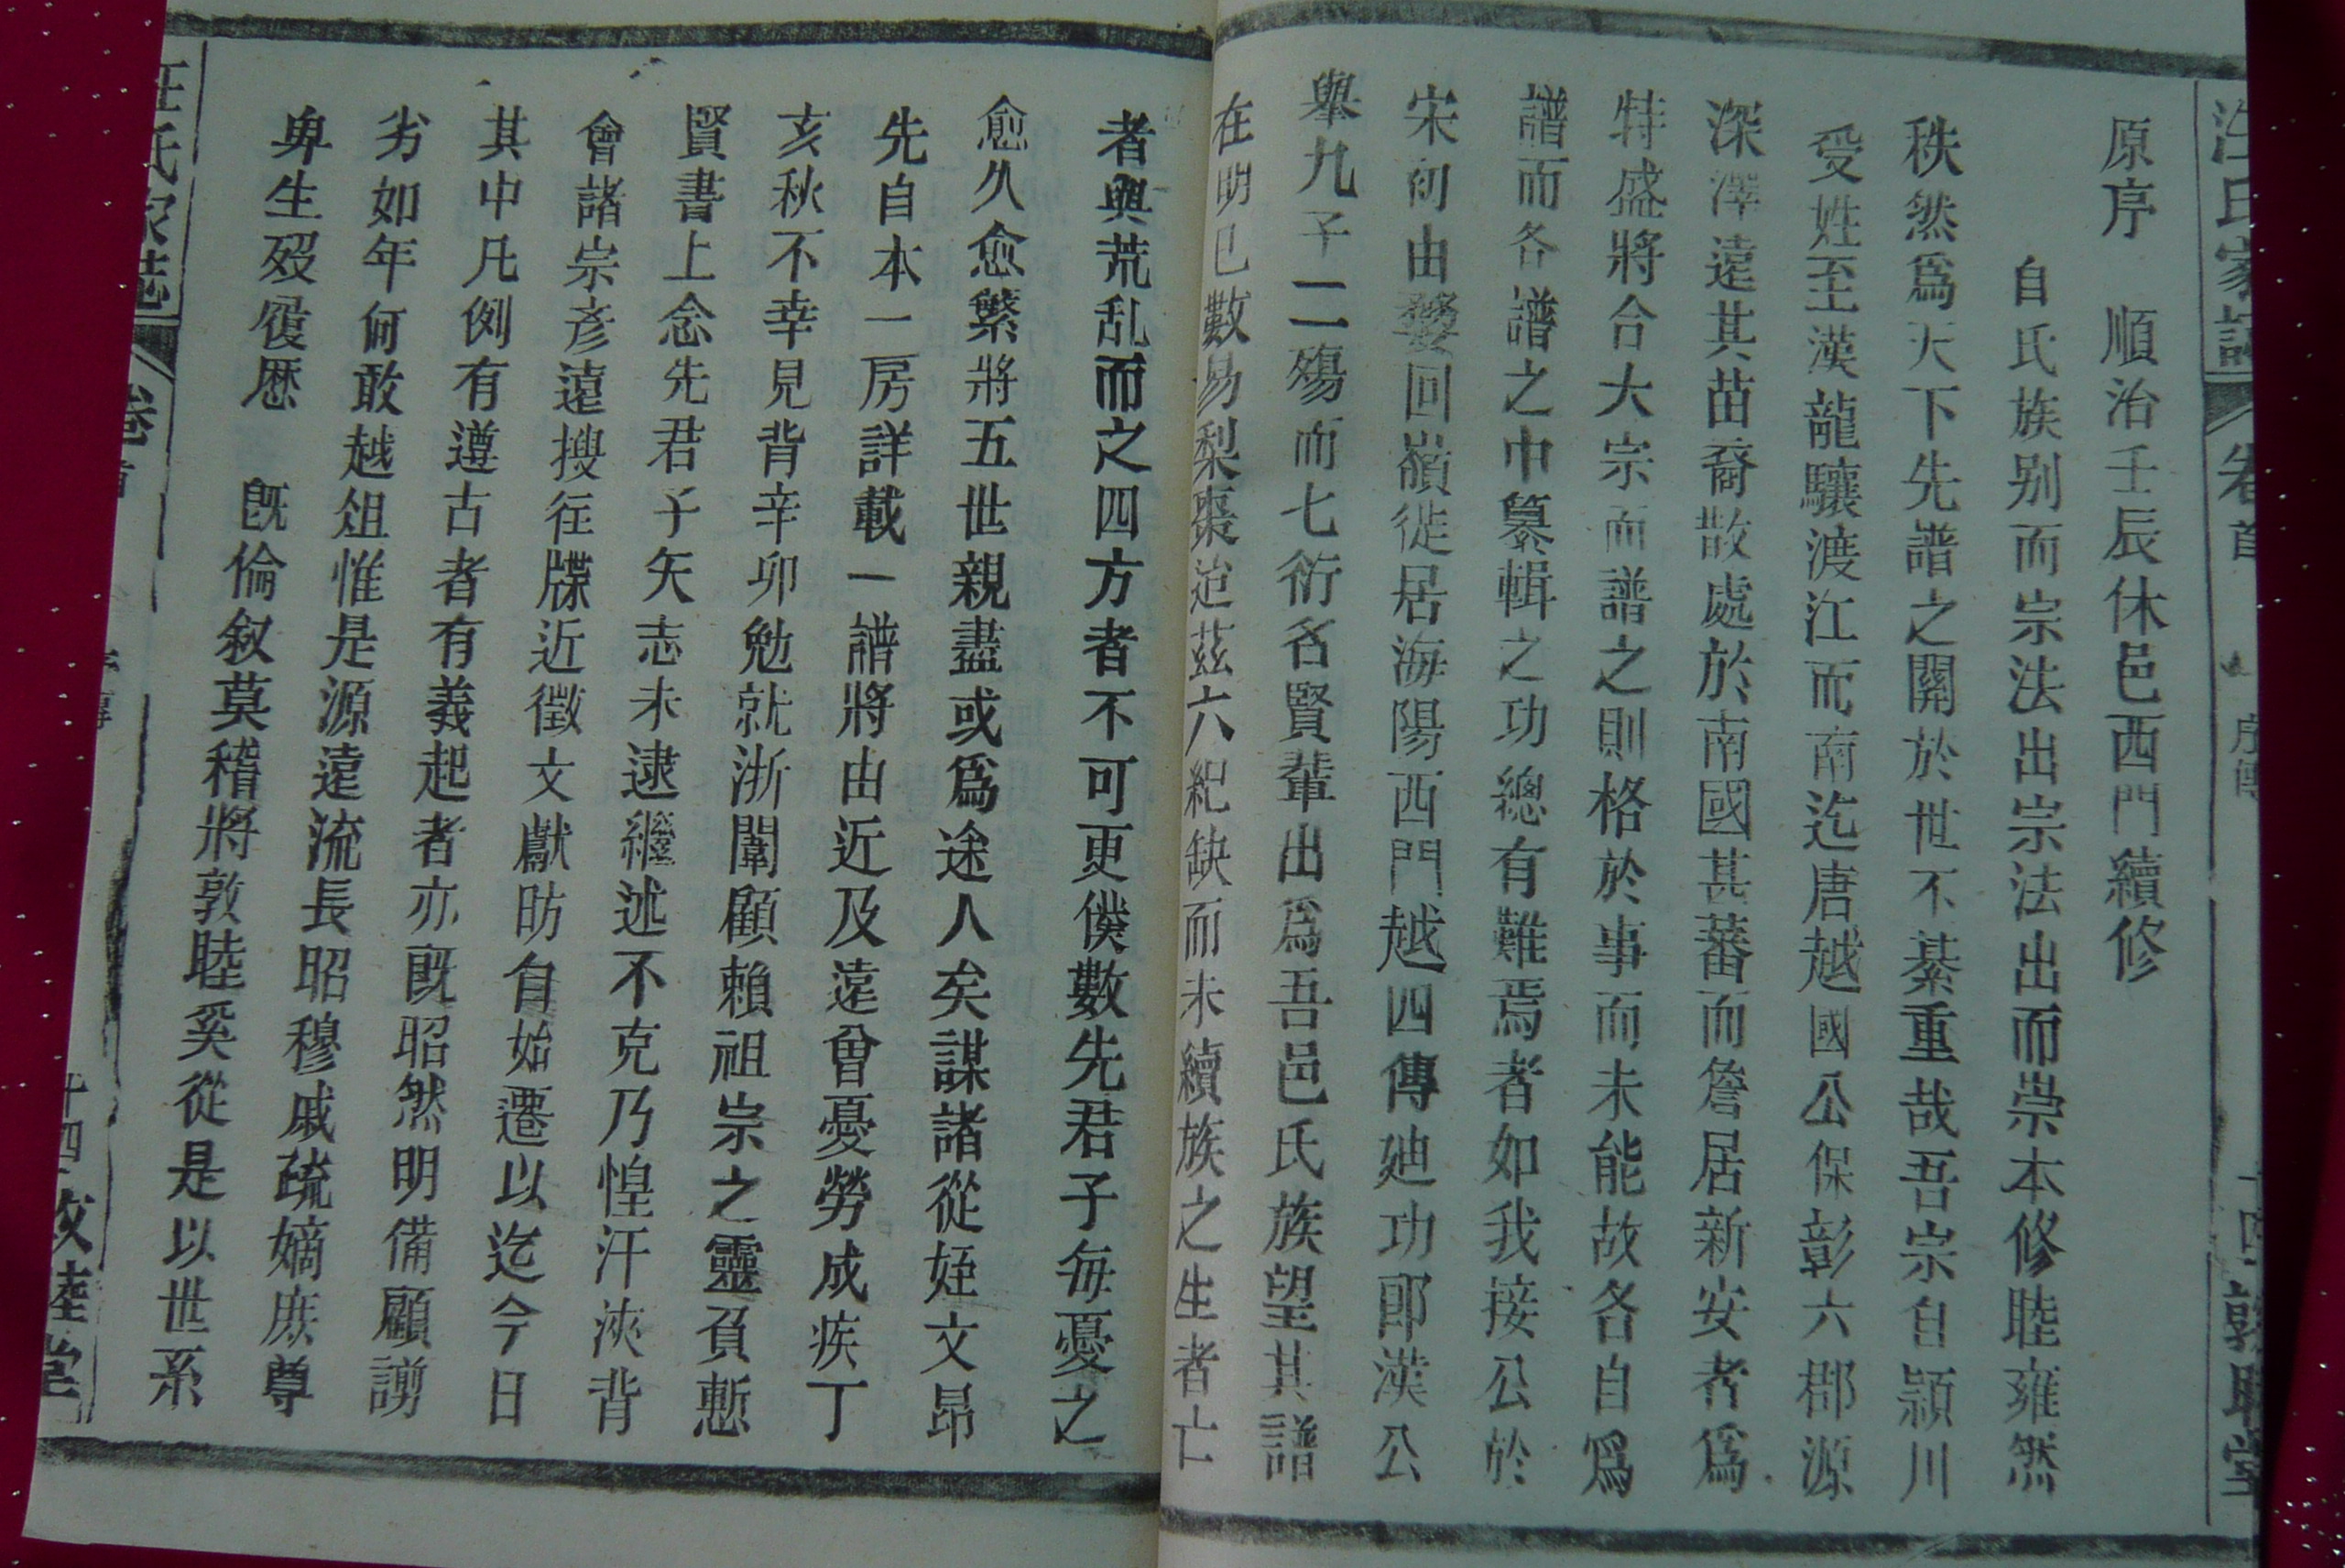 汪氏家譜 卷首 序傳 十四 敦睦堂
原序　順治壬辰休邑西門續修
自氏族别而宗法出宗法出而崇本修睦雍然
秩然爲天下先譜之關於世不綦重哉吾宗自潁川
受姓至漢龍驤渡江而南迄唐越國公保彰六郡源
深澤遠其苗裔散處於南國甚蕃而詹居新安者爲
特盛將合大宗而譜之則格於事而未能故各自爲
譜而各譜之中纂輯之功總有難焉者如我接公於
宋初由婺回嶺徙居海陽西門越四傳廸功郎漢公
舉九子二殤而七衍名賢輩出爲吾邑氏族望其譜
在明已數易梨棗迨茲六紀缺而未續族之生者亡
者與荒乱而之四方者不可更僕數先君子每憂之
愈久愈繁將五世親盡或爲途人矣謀諸從姪文昂
先自本一房詳載一譜將由近及遠曾憂勞成疾丁
亥秋不幸見背辛卯勉就浙闈顧賴祖宗之靈負慙
賢書上念先君子矢志未逮繼述不克乃惶汗浹背
會諸宗彥遠搜徃牒近徵文獻昉自始遷以迄今日
其中凡例有遵古者有義起者亦旣昭然明備顧謭
劣如年何敢越俎惟是源遠流長昭穆戚疏嫡庶尊
卑生殁履歷　旣倫叙莫稽將敦睦奚從是以世系
汪氏家誌 卷首 序傳 十四 敦睦堂